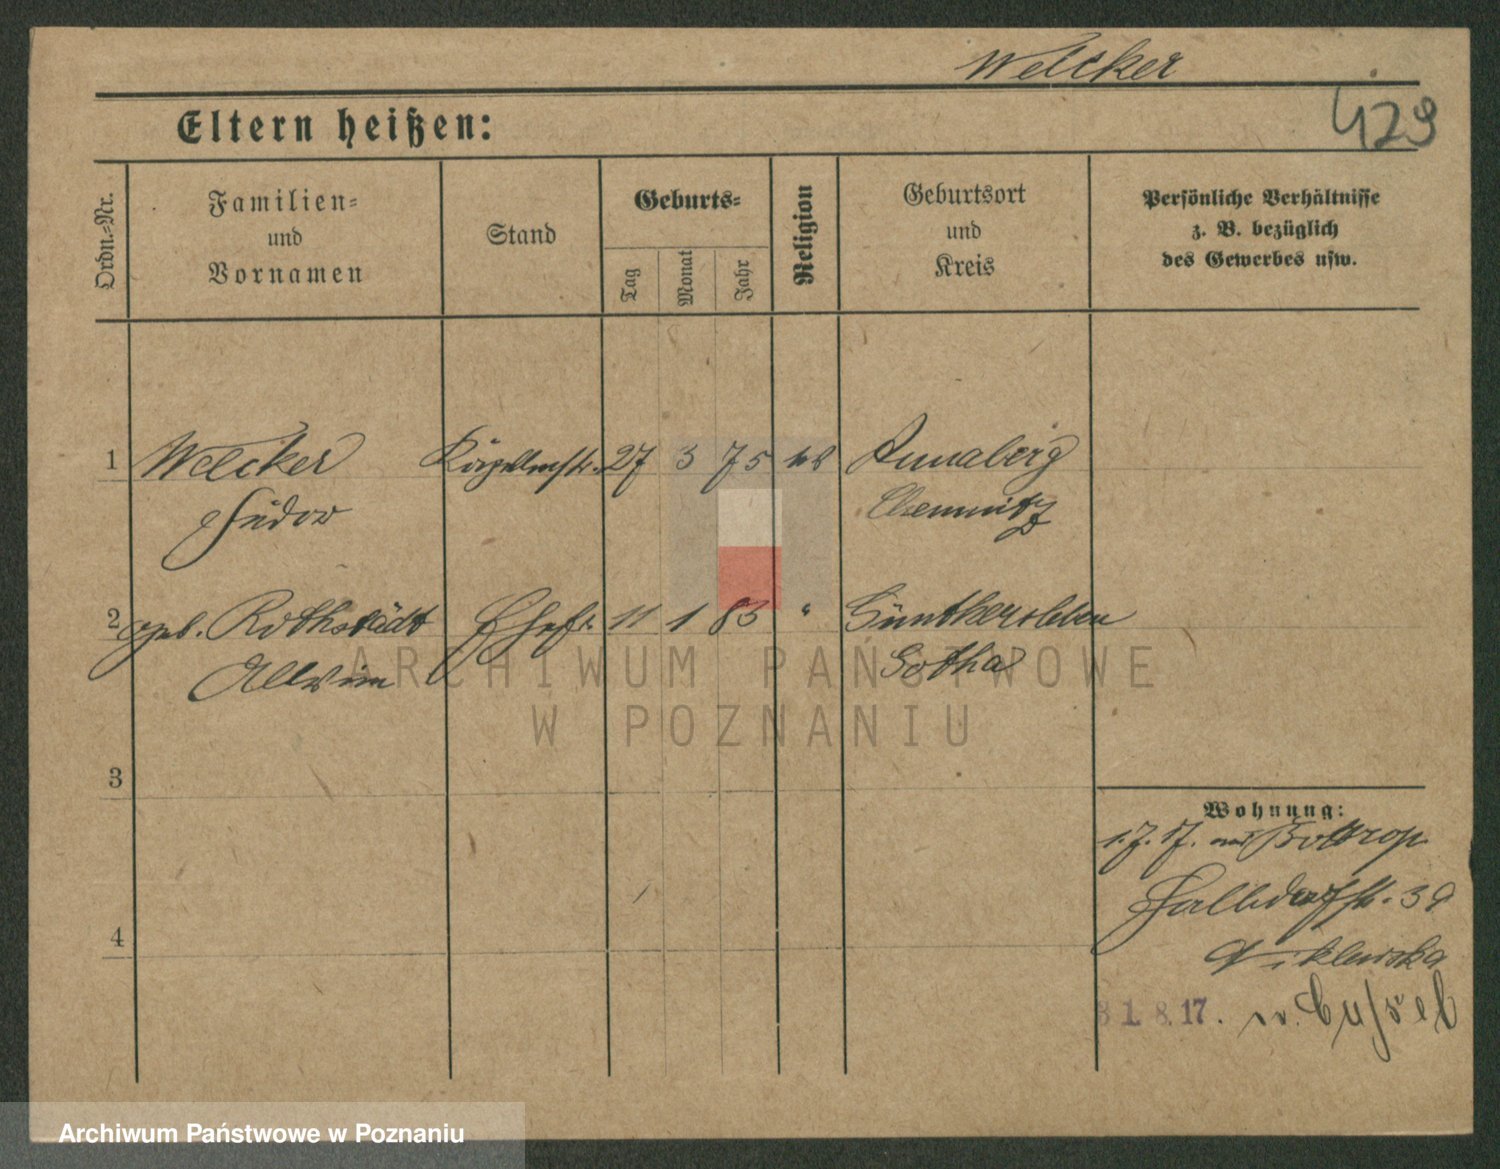 Welcker
429
Eltern heißen:
Ordn.-Nr.
Familien-
und
Vornamen
Stand
Geburts-
Tag
Monat
Jahr
Religion
Geburtsort
und
Kreis
Persönliche Verhältnisse
z. B. bezüglich
des Gewerbes usw.
1 Welcker 27 3 75 Annaberg
Chemnitz
2 geb. Rothstädt Ehefr. 11 1 83 " Günthersleben
Allwine Gotha
ARCHIWUM PAŃSTWOWE
W POZNANIU
3
4
Wohnung:
1.7.17. aus Bottrop
str. 39
31.8.17. n.
Archiwum Państwowe w Poznaniu